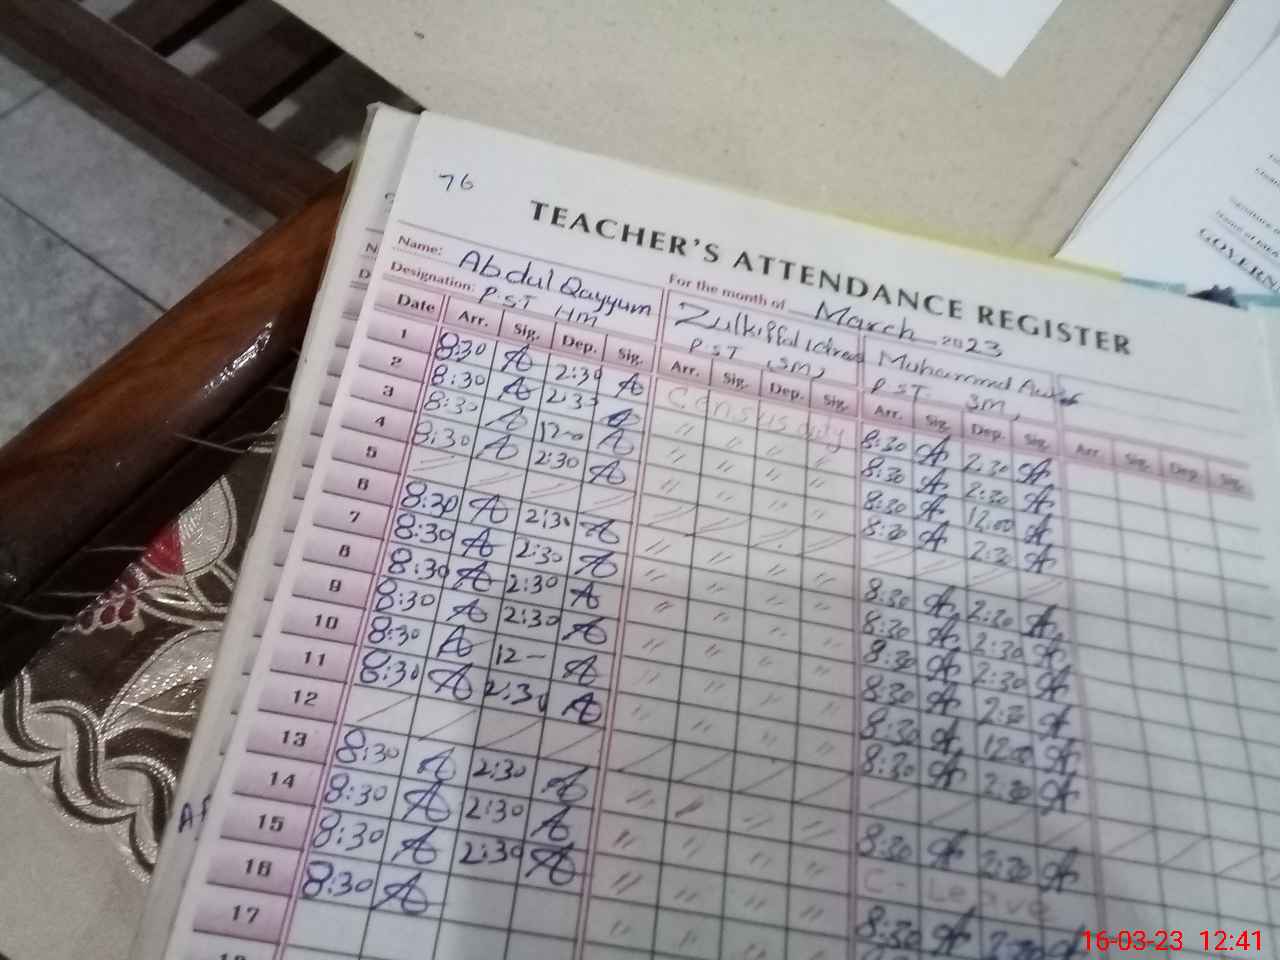 76
TEACHER'S ATTENDANCE REGISTER
Name: Abdul Qayyum
For the month of March 2023
Designation: P.ST HM
Zulkiffal
P.ST (SM)
Muhammad
P.ST. SM,
Date Arr. Sig. Dep. Sig. Arr. Sig. Dep. Sig. Arr. Sig. Dep. Sig. Arr. Sig. Dep. Sig.
1 8:30 A 2:30 A Census duty 8:30 2:30
2 8:30 A 2:30 A 〃 〃 〃 〃 8:30 2:30
3 8:30 A 12-0 A 〃 〃 〃 〃 8:30 12:00
4 8:30 A 2:30 A 〃 〃 〃 〃 8:30 2:30
5
6 8:30 A 2:30 A 〃 〃 〃 〃 8:30 2:30
7 8:30 A 2:30 A 〃 〃 〃 〃 8:30 2:30
8 8:30 A 2:30 A 〃 〃 〃 〃 8:30 2:30
9 8:30 A 2:30 A 〃 〃 〃 〃 8:30 2:30
10 8:30 A 12- A 〃 〃 〃 〃 8:30 12:00
11 8:30 A 2:30 A 〃 〃 〃 〃 8:30 2:30
12
13 8:30 A 2:30 A 〃 〃 〃 〃 8:30 2:30
14 8:30 A 2:30 A 〃 〃 〃 〃 C-Leave
15 8:30 A 2:30 A 〃 〃 〃 〃 8:30 2:30
16 8:30 A
17
GOVERN
16-03-23 12:41